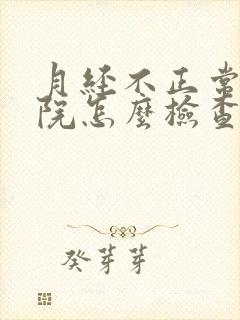 月経不正常
院怎麽檢查
癸芽芽